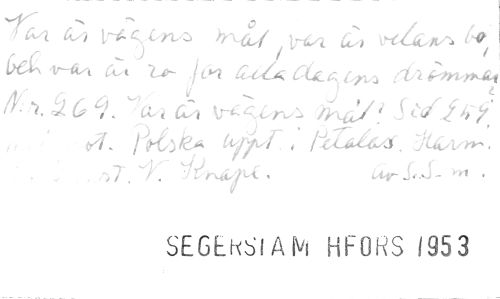 Var är vägens mål, var är vilans bo,
och var är ro för alla dagens drömmar?
N:r. 269. Var är vägens mål? Sid 259.
ot. Polska uppt. i Petalax. Harm.
st. V. Knape. av S.S-m.
SEGERSTAM HFORS 1953